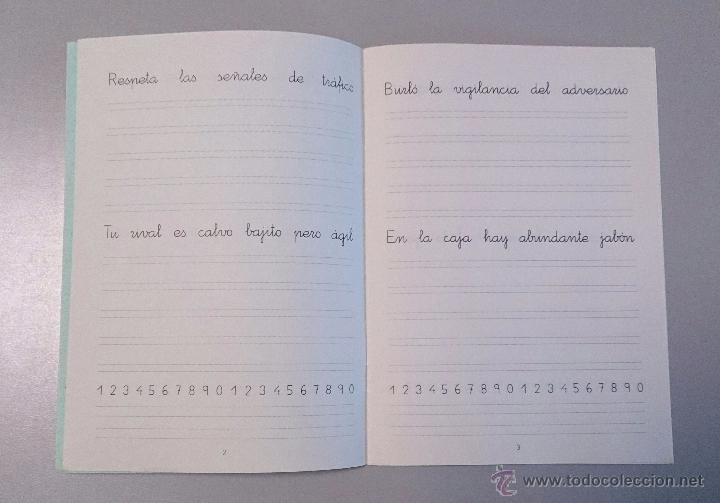 Respeta las señales de tráfico
Tu rival es calvo bajito pero ágil
1 2 3 4 5 6 7 8 9 0 1 2 3 4 5 6 7 8 9 0
2
Burló la vigilancia del adversario
En la caja hay abundante jabón
1 2 3 4 5 6 7 8 9 0 1 2 3 4 5 6 7 8 9 0
3
www.todocoleccion.net